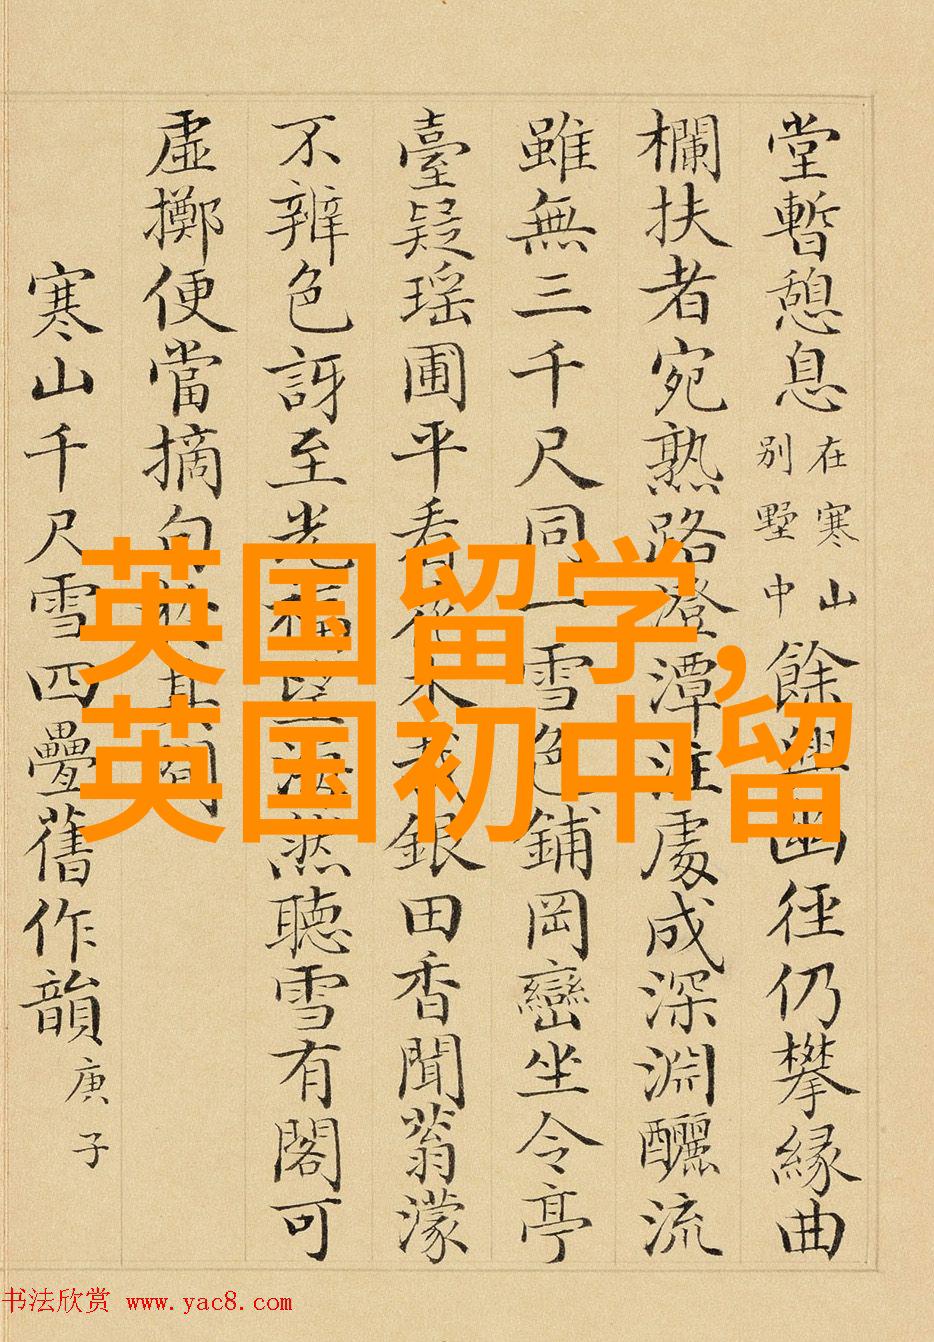 堂暫憩息在寒山別墅中餘興幽徑仍攀緣曲
欄扶者宛熟路澄潭注處成深淵釃流
雖無三千尺同一雪色鋪岡巒坐令亭
臺疑瑶圃平看花木栽銀田香聞蓊濛
不辨色訝至光福 法然聽雪有閣可
虛擲便當摘句於其間
寒山千尺雪四疊舊作韻庚子
英国留学,
英国初中留
书法欣赏 www.yac8.com